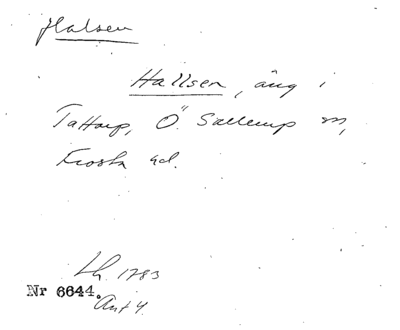 Halsen
Hallsen, äng i
Tattarp, Ö. Sallerup sn,
Frosta hd.
Lh. 1783
Nr 6644.
Akt 4.